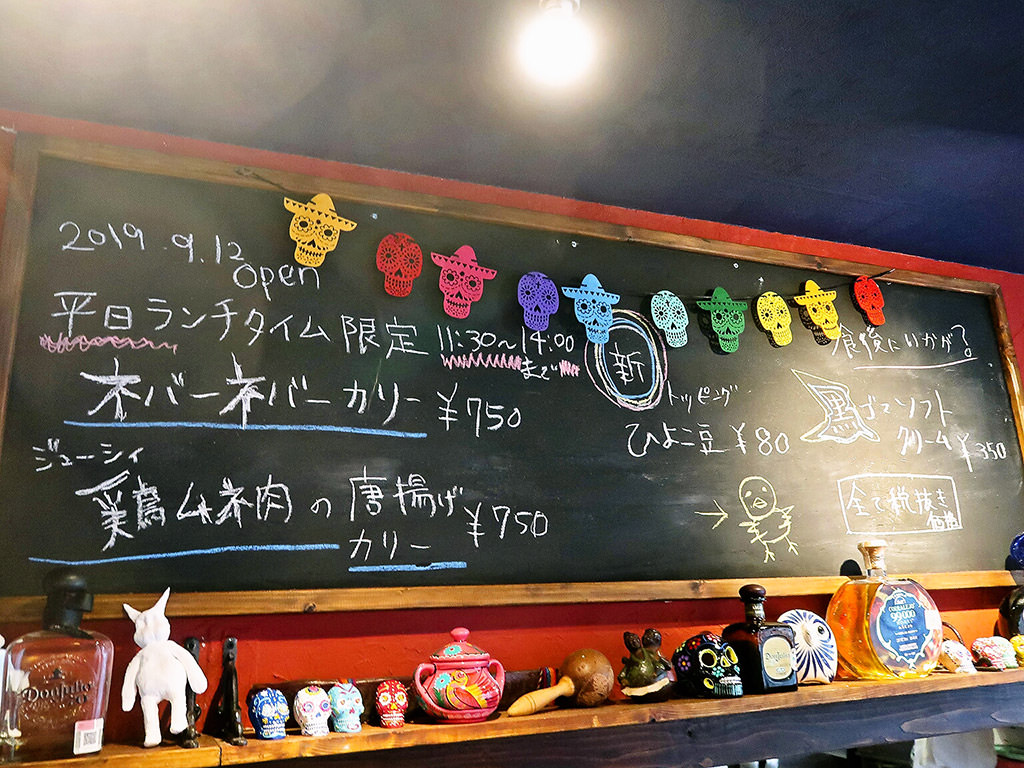 2019.9.12
open
平日ランチタイム限定 11:30～14:00
まで
ネバーネバーカリー ¥750
ジューシィ
鶏ムネ肉の唐揚げ
カリー ¥750
新
トッピング
ひよこ豆 ¥80
食後にいかが?
黒ゴマソフト
クリーム ¥350
全て税抜き
価格
Don Julio
99,000